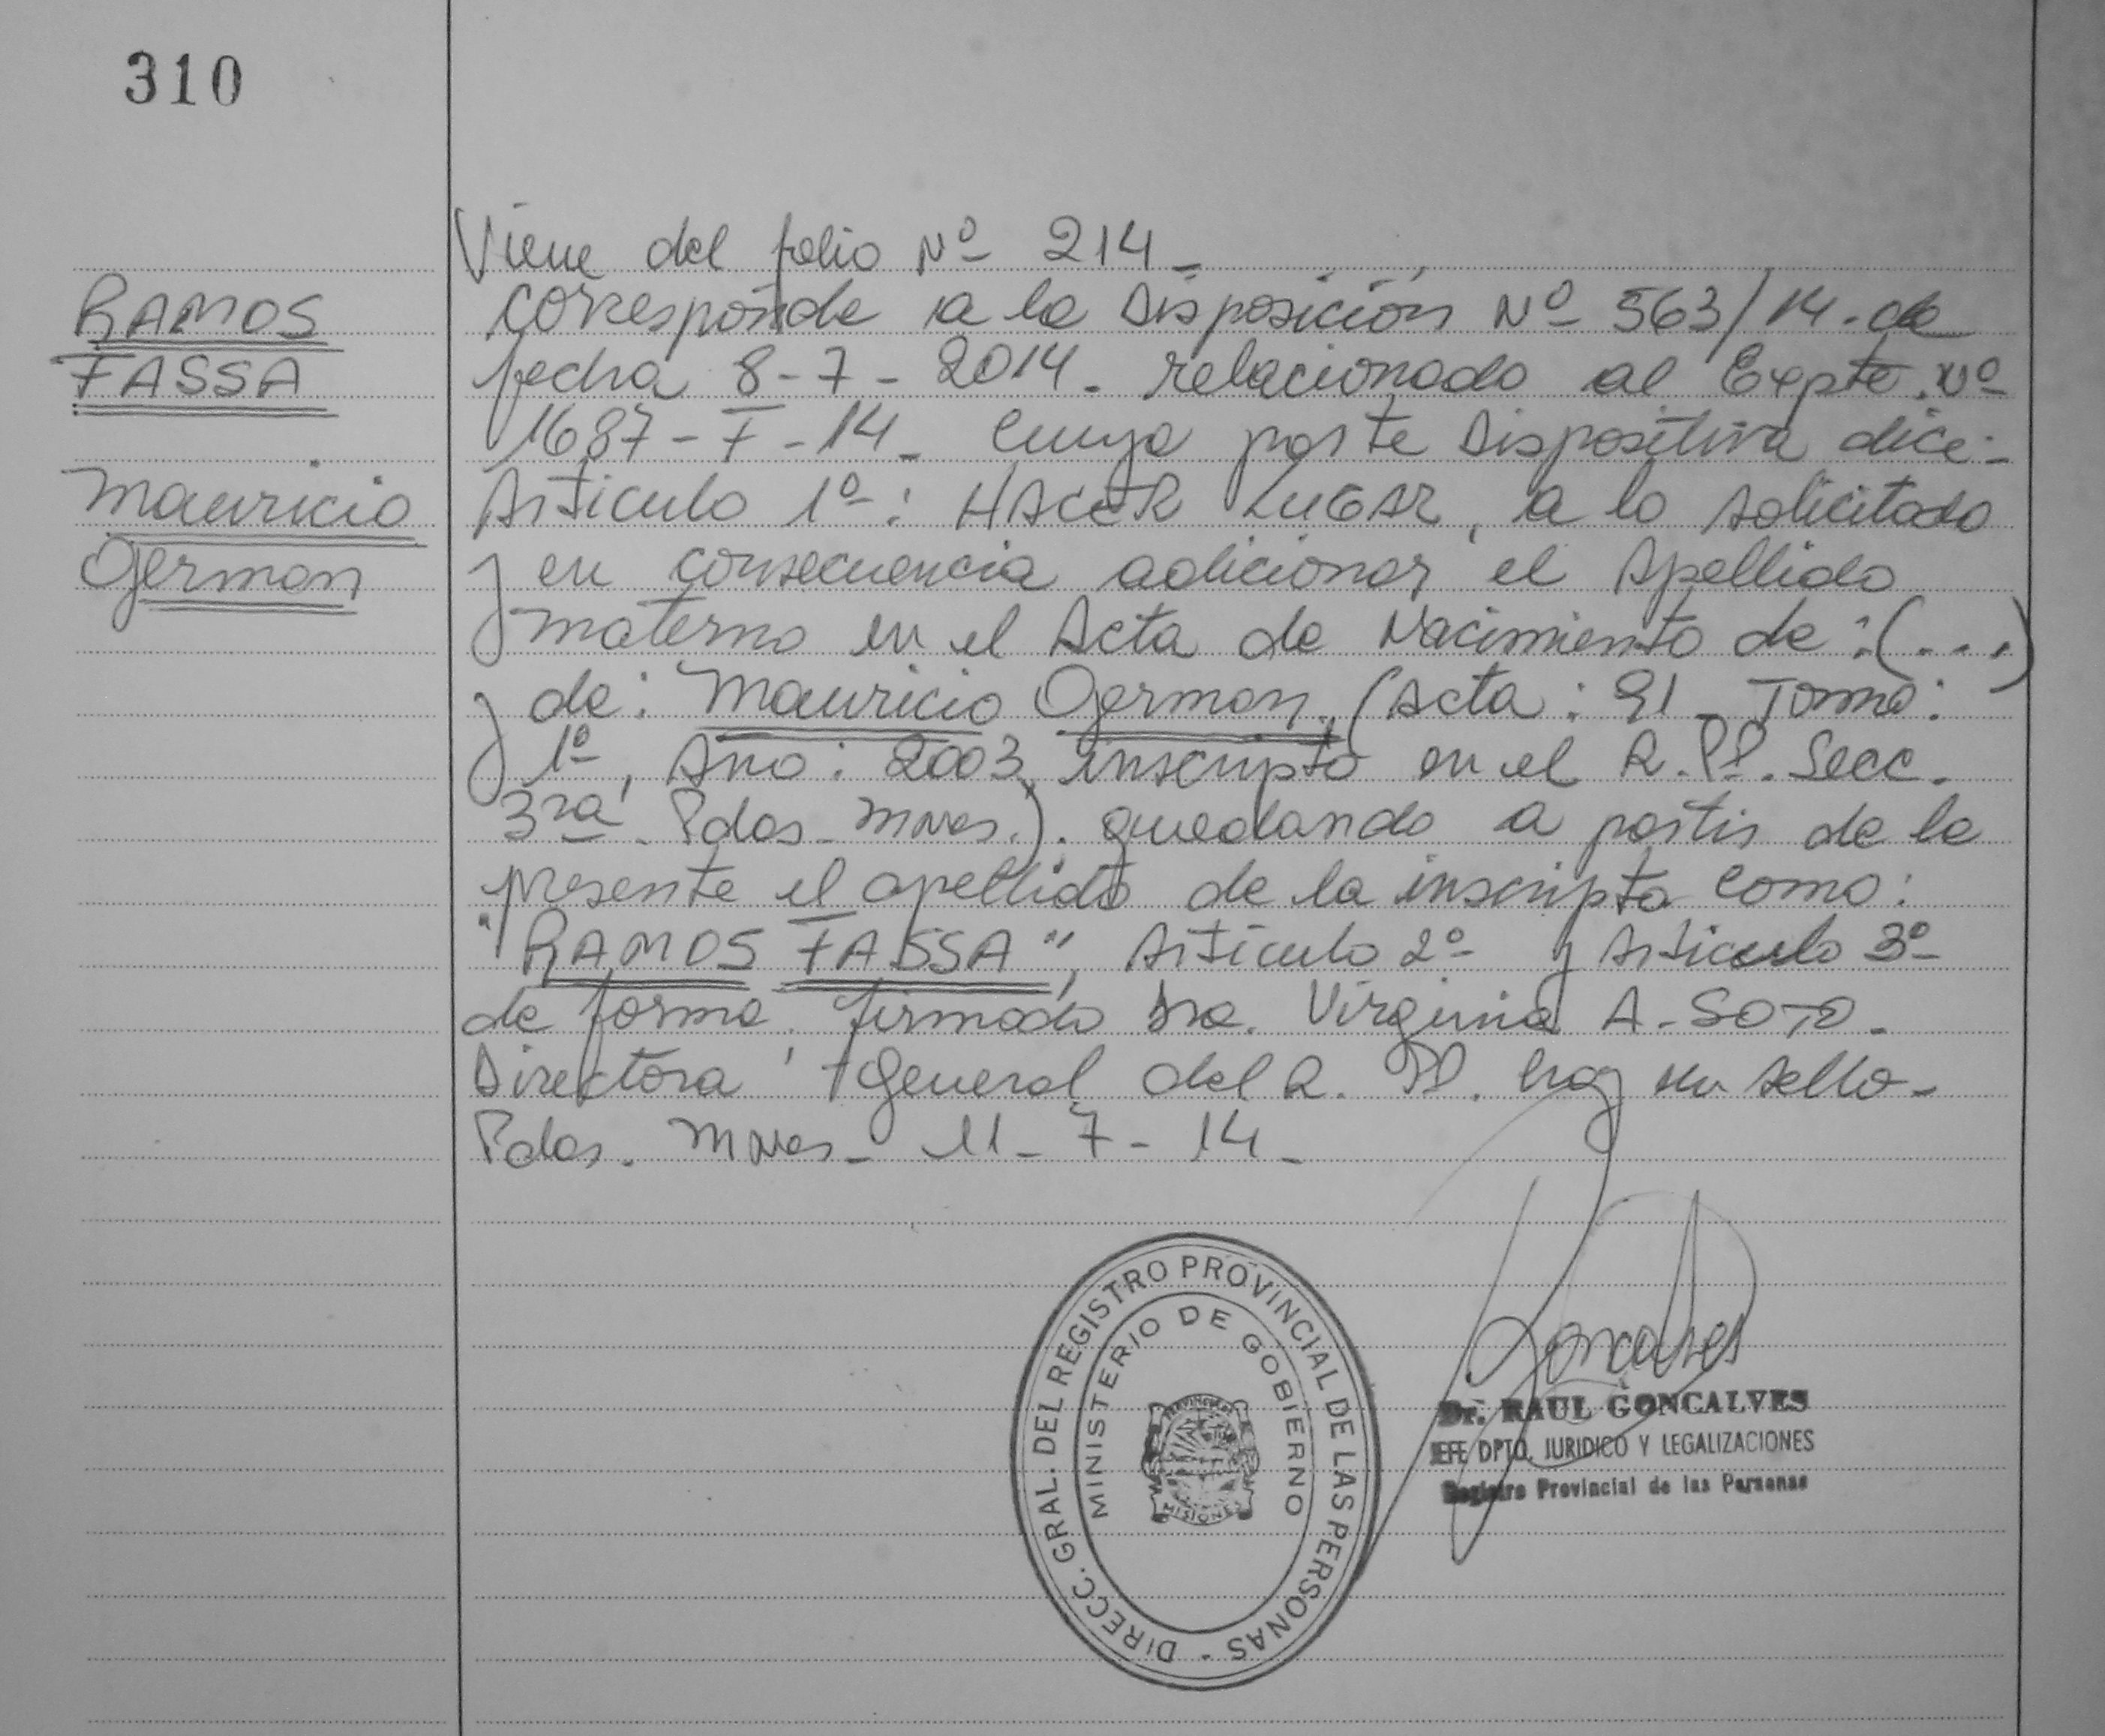 310
RAMOS
FASSA
Mauricio
German
Viene del folio Nº 214-
corresponde a la Disposición Nº 563/14. de
fecha 8-7-2014. relacionado al Expte. Nº
1687-F-14- Cuya parte Dispositiva dice:-
Artículo 1º: HACER LUGAR, a lo solicitado
y en consecuencia adicionar el Apellido
materno en el Acta de Nacimiento de: (...)
y de: Mauricio German, (Acta: 91 - Tomo:
1º, Año: 2003, inscripto en el R.PP. Secc.
3ra. Pdas-Mnes.). quedando a partir de la
presente el apellido de la inscripta como:
"RAMOS FASSA", Artículo 2º y Artículo 3º
de forma. firmado Dra. Virginia A. SOTO.
Directora General del R. PP. hay un sello-
Pdas. Mnes- 11-7-14-
DIRECC. GRAL. DEL REGISTRO PROVINCIAL DE LAS PERSONAS -
MINISTERIO DE GOBIERNO
PROVINCIA DE
MISIONES
Goncalves
Dr. RAUL GONCALVES
JEFE DPTO. JURIDICO Y LEGALIZACIONES
Registro Provincial de las Personas